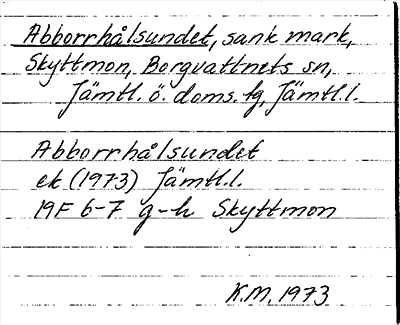 Abborrhålsundet, sank mark,
Skyttmon, Borgvattnets sn,
Jämtl. ö. doms. tg, Jämtl.l.
Abborrhålsundet
ek (1973) Jämtl.l.
19F 6-7 g-h Skyttmon
K.M. 1973